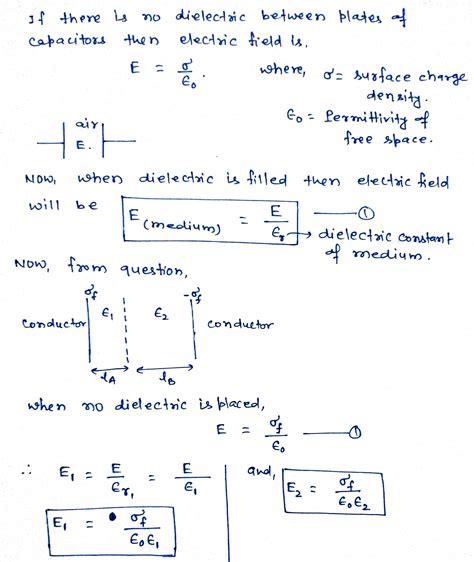 If there is no dielectric between plates of
capacitors then electric field is.
E = σ/ε₀. where, σ = surface charge
density.
ε₀ = Permittivity of
free space.
air
E.
Now, when dielectric is filled then electric field
will be E(medium) = E/εᵣ ——① 
→ dielectric constant
of medium.
Now, from question,
σf -σf
conductor ε₁ ε₂ conductor
lA lB
when no dielectric is placed,
E = σf/ε₀ ——①
∴ E₁ = E/εᵣ₁ = E/ε₁ and, E₂ = σf/ε₀ε₂
E₁ = σf/ε₀ε₁